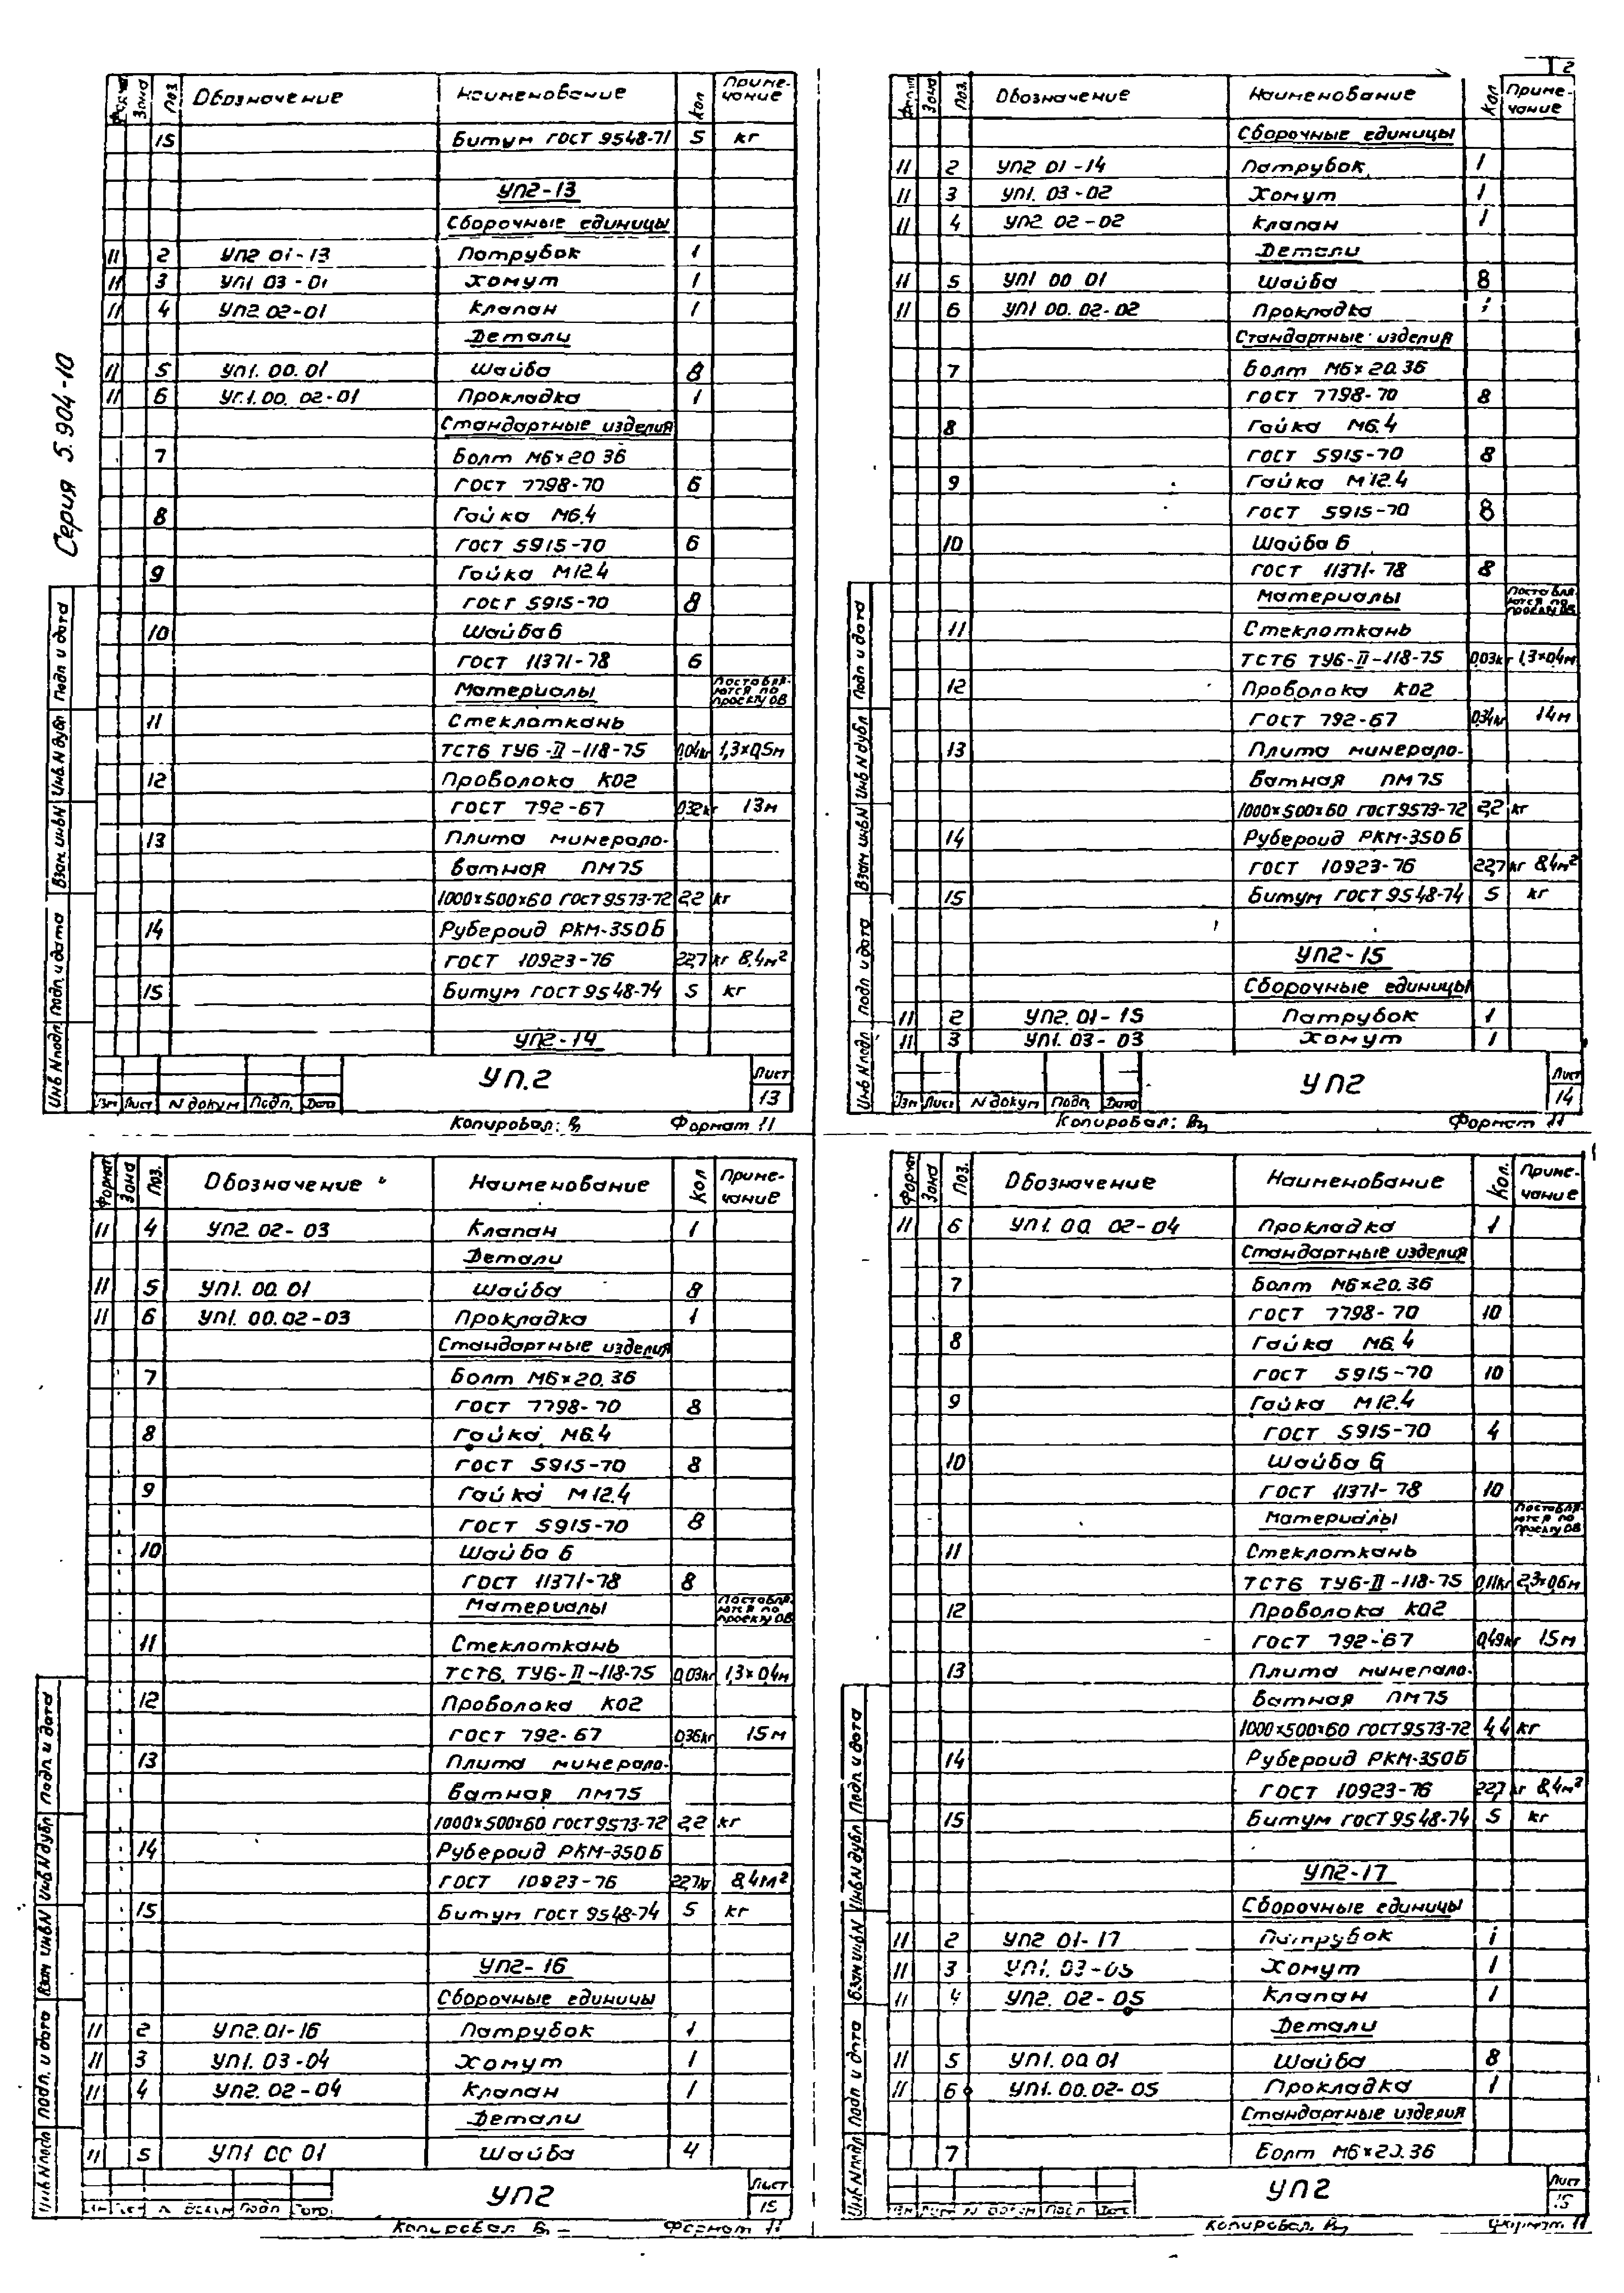 Серия 5.904-10
Формат Зона Поз. Обозначение Наименование Кол Приме-чание
15 Битум ГОСТ 9548-71 5 кг
УП2-13
Сборочные единицы
11 2 УП2 01-13 Патрубок 1
11 3 УП1 03-01 Хомут 1
11 4 УП2 02-01 Клапан 1
Детали
11 5 УП1.00.01 Шайба 8
11 6 УП.1.00.02-01 Прокладка 1
Стандартные изделия
7 Болт М6×20 36
ГОСТ 7798-70 6
8 Гайка М6.4
ГОСТ 5915-70 6
9 Гайка М12 4
ГОСТ 5915-70 8
10 Шайба 6
ГОСТ 11371-78 6
Материалы Поставля-ются по проекту ОВ
11 Стеклоткань
ТСТ6 ТУ6-II-118-75 0,04кг 1,3×0,5м
12 Проволока К02
ГОСТ 792-67 0,32кг 13м
13 Плита минерало-
ватная ПМ75
1000×500×60 ГОСТ 9573-72 2,2 кг
14 Рубероид РКМ-350Б
ГОСТ 10923-76 22,7 кг 8,4м²
15 Битум ГОСТ 9548-74 5 кг
УП2-14
Инв N подл Подп и дата Взам инв N Инв N дубл Подп и дата
Изм Лист N докум Подп. Дата
УП.2
Лист
13
Копировал: Формат 11
2
Формат Зона Поз. Обозначение Наименование Кол Приме-чание
Сборочные единицы
11 2 УП2 01-14 Патрубок 1
11 3 УП1. 03-02 Хомут 1
11 4 УП2 02-02 Клапан 1
Детали
11 5 УП1 00 01 Шайба 8
11 6 УП1 00.02-02 Прокладка 1
Стандартные изделия
7 Болт М6×20.36
ГОСТ 7798-70 8
8 Гайка М6.4
ГОСТ 5915-70 8
9 Гайка М12.4
ГОСТ 5915-70 8
10 Шайба 6
ГОСТ 11371-78 8
Материалы Поставля-ются по проекту ОВ
11 Стеклоткань
ТСТ6 ТУ6-II-118-75 0,03кг 1,3×0,4м
12 Проволока К02
ГОСТ 792-67 0,34кг 14м
13 Плита минерало-
ватная ПМ75
1000×500×60 ГОСТ 9573-72 2,2 кг
14 Рубероид РКМ-350Б
ГОСТ 10923-76 22,7 кг 8,4м²
15 Битум ГОСТ 9548-74 5 кг
УП2-15
Сборочные единицы
11 2 УП2.01-15 Патрубок 1
11 3 УП1.03-03 Хомут 1
Инв N подл Подп и дата Взам инв N Инв N дубл Подп и дата
Изм Лист N докум Подп Дата
УП2
Лист
14
Копировал: Формат 11
Формат Зона Поз. Обозначение Наименование Кол Приме-чание
11 4 УП2. 02-03 Клапан 1
Детали
11 5 УП1. 00. 01 Шайба 8
11 6 УП1. 00.02-03 Прокладка 1
Стандартные изделия
7 Болт М6×20.36
ГОСТ 7798-70 8
8 Гайка М6.4
ГОСТ 5915-70 8
9 Гайка М12.4
ГОСТ 5915-70 8
10 Шайба 6
ГОСТ 11371-78 8
Материалы Поставля-ются по проекту ОВ
11 Стеклоткань
ТСТ6. ТУ6-II-118-75 0,03кг 1,3×0,4м
12 Проволока К02
ГОСТ 792-67 0,36кг 15м
13 Плита минерало-
ватная ПМ75
1000×500×60 ГОСТ 9573-72 2,2 кг
14 Рубероид РКМ-350Б
ГОСТ 10923-76 22,7кг 8,4м²
15 Битум ГОСТ 9548-74 5 кг
УП2-16
Сборочные единицы
11 2 УП2.01-16 Патрубок 1
11 3 УП1. 03-04 Хомут 1
11 4 УП2. 02-04 Клапан 1
Детали
11 5 УП1 00 01 Шайба 4
Инв N подл Подп. и дата Взам инв N Инв N дубл Подп. и дата
УП2
Лист
15
Копировал Формат 11
Формат Зона Поз. Обозначение Наименование Кол. Приме-чание
11 6 УП1. 00. 02-04 Прокладка 1
Стандартные изделия
7 Болт М6×20.36
ГОСТ 7798-70 10
8 Гайка М6.4
ГОСТ 5915-70 10
9 Гайка М12.4
ГОСТ 5915-70 4
10 Шайба 6
ГОСТ 11371-78 10
Материалы Поставля-ются по проекту ОВ
11 Стеклоткань
ТСТ6 ТУ6-II-118-75 0,11кг 2,3×0,6м
12 Проволока К02
ГОСТ 792-67 0,49кг 15м
13 Плита минерало-
ватная ПМ75
1000×500×60 ГОСТ 9573-72 4,4 кг
14 Рубероид РКМ-350Б
ГОСТ 10923-76 22,7 кг 8,4м²
15 Битум ГОСТ 9548-74 5 кг
УП2-17
Сборочные единицы
11 2 УП2 01-17 Патрубок 1
11 3 УП1. 03-05 Хомут 1
11 4 УП2. 02-05 Клапан 1
Детали
11 5 УП1.00 01 Шайба 8
11 6 УП1.00.02-05 Прокладка 1
Стандартные изделия
7 Болт М6×20.36
Инв N подл Подп и дата Взам инв N Инв N дубл Подп. и дата
УП2
Лист
Копировал. Формат 11